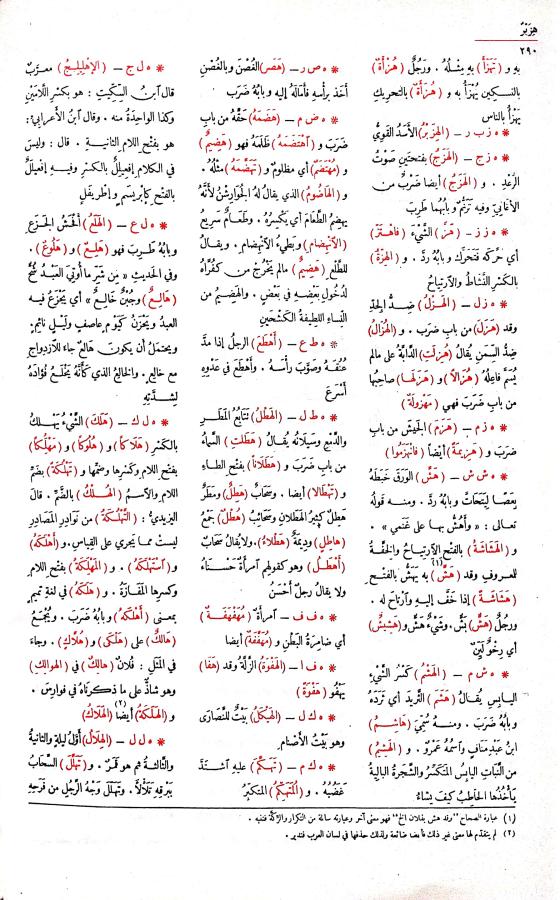 هزبر
٢٩٠
به و (تَهَزَّأَ) به مِثْلُهُ . ورَجُلٌ (هُزْأَةٌ)
بالتسكين يُهْزَأُ به و (هُزَأَةٌ) بالتحريك
يَهْزَأُ بالناس
* ه‍ ز ب ر – (الهِزَبْرُ) الأسَدُ القَوِيُّ
* ه‍ ز ج – (الهَزَجُ) بفتحتين صَوْتُ
الرَّعْدِ . و (الهَزَجُ) أيضا ضَرْبٌ من
الأغانِيّ وفيه تَرَنُّمٌ وبابُهما طَرِبَ
* ه‍ ز ز – (هَزَّ) الشَّيْءَ (فاهْتَزَّ)
أي حَرَّكَه فَتَحَرَّكَ وبابُه رَدَّ . و (الهِزَّةُ)
بالكَسْرِ النَّشَاطُ والارْتِياحُ
* ه‍ ز ل – (الهَزْلُ) ضِدُّ الجِدِّ
وقد (هَزَلَ) من باب ضَرَب . و (الهُزَالُ)
ضِدُّ السِّمَنِ يُقالُ (هُزِلَتِ) الدَّابَّةُ على مالم
يُسَمَّ فاعِلُهُ (هُزَالًا) و (هَزَلَهَا) صاحِبُها
من باب ضَرَبَ فهي (مَهْزُولَةٌ)
* ه‍ ز م – (هَزَمَ) الجَيْشَ من باب
ضَرَبَ و (هَزِيمَةً) أيضًا (فانْهَزَمُوا)
* ه‍ ش ش – (هَشَّ) الوَرَقَ خَبَطَهُ
بعَصًا لِيَتَحَاتَّ وبابُه رَدَّ . ومنه قَولُهُ
تعالى : « وأَهُشُّ بها على غَنَمِي » .
و (الهَشَاشَةُ) بالفتح الارتياحُ والخِفَّةُ
للمعروفِ وقد (هَشَّ) (١) به يَهَشُّ بالفتح
(هَشَاشَةً) إذا خَفَّ إليه وارتاحَ له .
ورجلٌ (هَشٌّ) بَشٌّ . وشَيْءٌ هَشٌّ و (هَشِيشٌ)
أي رِخْوٌ لَيِّنٌ
* ه‍ ش م – (الهَشْمُ) كَسْرُ الشَّيْءِ
اليابِسِ يُقالُ (هَشَمَ) الثَّرِيدَ أي ثَرَدَهُ
وبابُه ضَرَبَ . ومنه سُمِّيَ (هَاشِمُ)
ابنُ عبدِ مَنافٍ واسمُهُ عَمْرٌو . و (الهَشِيمُ)
من النَّباتِ اليابِسُ المُتَكَسِّرُ والشَّجَرَةُ البالِيَةُ
يأخُذُها الحاطِبُ كيفَ يشاءُ
* ه‍ ص ر – (هَصَرَ) الغُصْنَ وبالغُصْنِ
أَخَذَ برأسِهِ فأَمَالَهُ إليه وبابُه ضَرَب
* ه‍ ض م – (هَضَمَهُ) حَقَّهُ من باب
ضَرَبَ و (اهْتَضَمَهُ) ظَلَمَهُ فهو (هَضِيمٌ)
و (مُهْتَضَمٌ) أي مظلومٌ و (تَهَضَّمَهُ) مثلُهُ .
و (الهَاضُومُ) الذي يقالُ له الجُوَارِشْنُ لأنَّهُ
يهضِمُ الطَّعَامَ أي يَكْسِرُهُ . وطَعَامٌ سَرِيعُ
(الانهِضامِ) وبَطِيءُ الانهِضام . ويقالُ
للطَّلْعِ (هَضِيمٌ) مالم يَخْرُجْ من كُفُرَّاهُ
لدُخولِ بَعْضِهِ في بَعْضٍ . والهَضِيمُ من
النِّساءِ اللَّطِيفَةُ الكَشْحَيْنِ
* ه‍ ط ع – (أَهْطَعَ) الرجلُ إذا مَدَّ
عُنُقَهُ وصَوَّبَ رأسَهُ . وأَهْطَعَ في عَدْوِهِ
أَسْرَعَ
* ه‍ ط ل – (الهَطْلُ) تَتَابُعُ المَطَرِ
والدَّمْعِ وسَيَلانُه يُقالُ (هَطَلَتِ) السَّماءُ
من باب ضَرَبَ و (هَطَلَانًا) بفتح الطاء
و (تَهْطَالًا) أيضا . وسَحابٌ (هَطِلٌ) ومَطَرٌ
هَطِلٌ كَثِيرُ الهَطَلانِ وسَحائبُ (هُطْلٌ) جَمْعُ
(هاطِلٍ) ودِيمَةٌ (هَطْلَاءُ) . ولا يقالُ سَحابٌ
(أَهْطَلُ) وهو كقولهم امرأةٌ حَسْناءُ
ولا يقال رجلٌ أحْسَنُ
* ه‍ ف ف – امرأةٌ (مُهَفْهَفَةٌ)
أي ضامِرَةُ البَطْنِ و (مُهَفَّفَةٌ) أيضا
* ه‍ ف ا – (الهَفْوَةُ) الزَّلَّةُ وقد (هَفَا)
يَهْفُو (هَفْوَةً)
* ه‍ ك ل – (الهَيْكَلُ) بَيْتٌ للنَّصارَى
وهو بَيْتُ الأَصْنامِ
* ه‍ ك م – (تَهَكَّمَ) عليه اشتَدَّ
غَضَبُهُ . و (المُتَهَكِّمُ) المُتَكَبِّرُ
* ه‍ ل ج – (الإهْلِيلِجُ) معرَّبٌ
قال ابنُ السِّكِّيتِ : هو بكَسْرِ اللَّامَيْنِ
وكذا الواحِدَةُ منه . وقال ابنُ الأعرابيّ :
هو بفتح اللام الثانيةِ . قال : وليسَ
في الكلام إفْعِيلِلٌ بالكَسْرِ وفيه إفْعِيلَلٌ
بالفتح كإبْرِيسَمٍ وإطْرِيفَلٍ
* ه‍ ل ع – (الهَلَعُ) أَفْحَشُ الجَزَعِ
وبابُه طَرِبَ فهو (هَلِعٌ) و (هَلُوعٌ) .
وفي الحديثِ « مِن شَرِّ ما أُوتِيَ العَبْدُ شُحٌّ
(هَالِعٌ) وجُبْنٌ خَالِعٌ » أي يَجْزَعُ فيه
العبدُ ويَحْزَنُ كيَوْمٍ عاصِفٍ ولَيْلٍ نائمٍ .
ويحتمل أن يكونَ هَالِعٌ جاء للازدِواجِ
مع خالِعٍ . والخالِعُ الذي كأنَّهُ يَخْلَعُ فُؤَادَهُ
لِشِدَّتِهِ
* ه‍ ل ك – (هَلَكَ) الشَّيْءُ يَهْلِكُ
بالكسْرِ (هَلَاكًا) و (هُلُوكًا) و (مَهْلُكًا)
بفتح اللام وكَسْرِها وضَمِّها و (تَهْلُكَةً) بضَمِّ
اللام والاسمُ (الهُلْكُ) بالضَّمِّ . قال
اليَزِيديُّ : (التَّهْلُكَةُ) من نَوادِرِ المَصَادِرِ
ليست مما يَجْرِي على القِياس . و (أَهْلَكَهُ)
و (اسْتَهْلَكَهُ) . و (المَهْلَكَةُ) بفتح اللام
وكسرِها المَفازَةُ . و (هَلَكَهُ) في لغةِ تميمٍ
بمعنى (أَهْلَكَهُ) وبابُه ضَرَبَ . ويُجْمَعُ
(هَالِكٌ) على (هَلْكَى) و (هُلَّاكٍ) . وجاء
في المَثَلِ : فُلانٌ (هالِكٌ) في (الهوالِكِ)
وهو شاذٌّ على ما ذكرناهُ في فوارِسَ .
و (الهَلَكَةُ) أيضًا (٢) (الهَلَاكُ)
* ه‍ ل ل – (الهِلَالُ) أوّلُ ليلةٍ والثانيةُ
والثَّالثةُ ثم هو قَمَرٌ . و (تَهَلَّلَ) السَّحابُ
بِبَرْقِهِ تَلَأْلَأَ . وتَهَلَّلَ وَجْهُ الرَّجُلِ من فَرَحِهِ
(١) عبارة الصحاح "وقد هش بفلان الخ" فهو معنى آخر وعبارته سالمة من التكرار والركة فتنبه .
(٢) لم يتقدم لها معنى غير ذلك فأيضا ضائعة ولذلك حذفها في لسان العرب فتدبر .